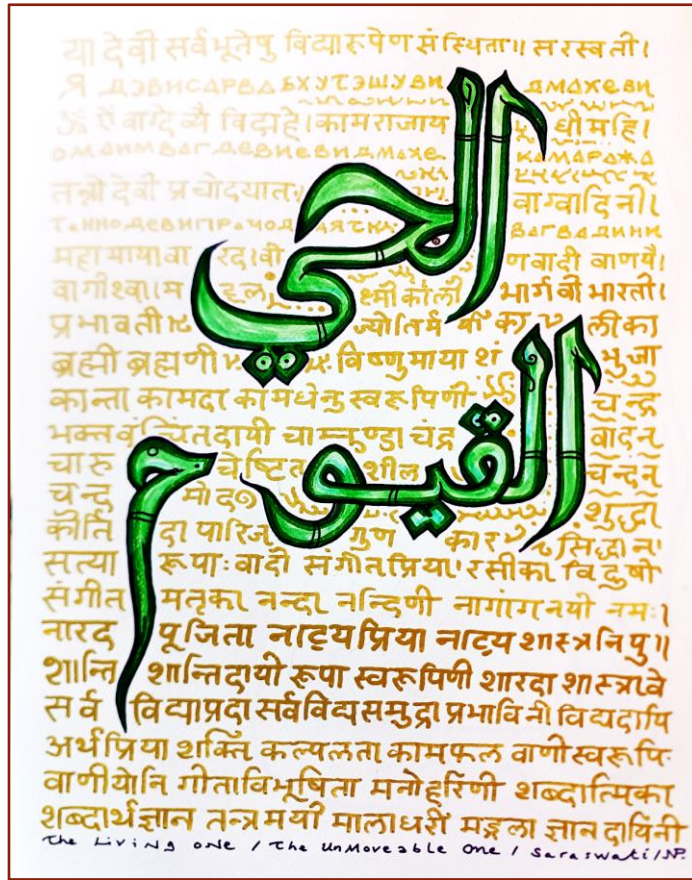 या देवी सर्वभूतेषु विद्यारूपेण संस्थिता॥ सरस्वती।
Я ДЭВИ САРВА БХУТЭШУ ВИ ДМАХЕВИ
ॐ ऐं वाग्देव्यै विद्महे। कामराजाय धीमहि।
ОМ АИМ ВАГДЕВИЕ ВИДМАХЕ КАМАРАЖА
तन्नो देवी प्रचोदयात। वाग्वादिनी।
ТАННО ДЕВИ ПРАЧОД ВАГВАДИНИ
الحي
महामायावा रदा वी णवादी वाणयै।
वागीश्वा क्ष्मी काली भार्गवी भारती।
प्रभावती ज्योतिर्म का लीका
ब्रह्मी ब्रह्मणी विष्णुमाया शं भुजा
कान्ता कामदा कामधेनु स्वरूपिणी चन्द्र
القيوم
भक्तवं चितदायी चामुण्डा चंद्र वादन
चारु चेष्टित शील चन्दन
चन्द्र मोद शुद्धा
कीर्ति दा पारिज गुण कार सिद्धा न
सत्या रूपाः वादी संगीतप्रिया रसीका विदुषी
संगीत मतृका नन्दा नन्दिणी नागांग नमः।
नारद पूजिता नाट्यप्रिया नाट्य शास्त्रनिपु॥
शान्ति शान्तिदायी रूपा स्वरूपिणी शारदा शास्त्रवे
सर्व विद्याप्रदा सर्वविद्यसमुद्रा प्रभाविनी विद्यदायि
अर्थप्रिया शक्ति कल्पलता कामफल वाणीस्वरूपि
वाणीयोनि गीताविभूषिता मनोहरिणी शब्दात्मिका
शब्दार्थज्ञान तन्त्रमयी मालाधरीं मङ्गला ज्ञानदायिनी
The Living one / The UnMoveable One / Saraswati / NP.